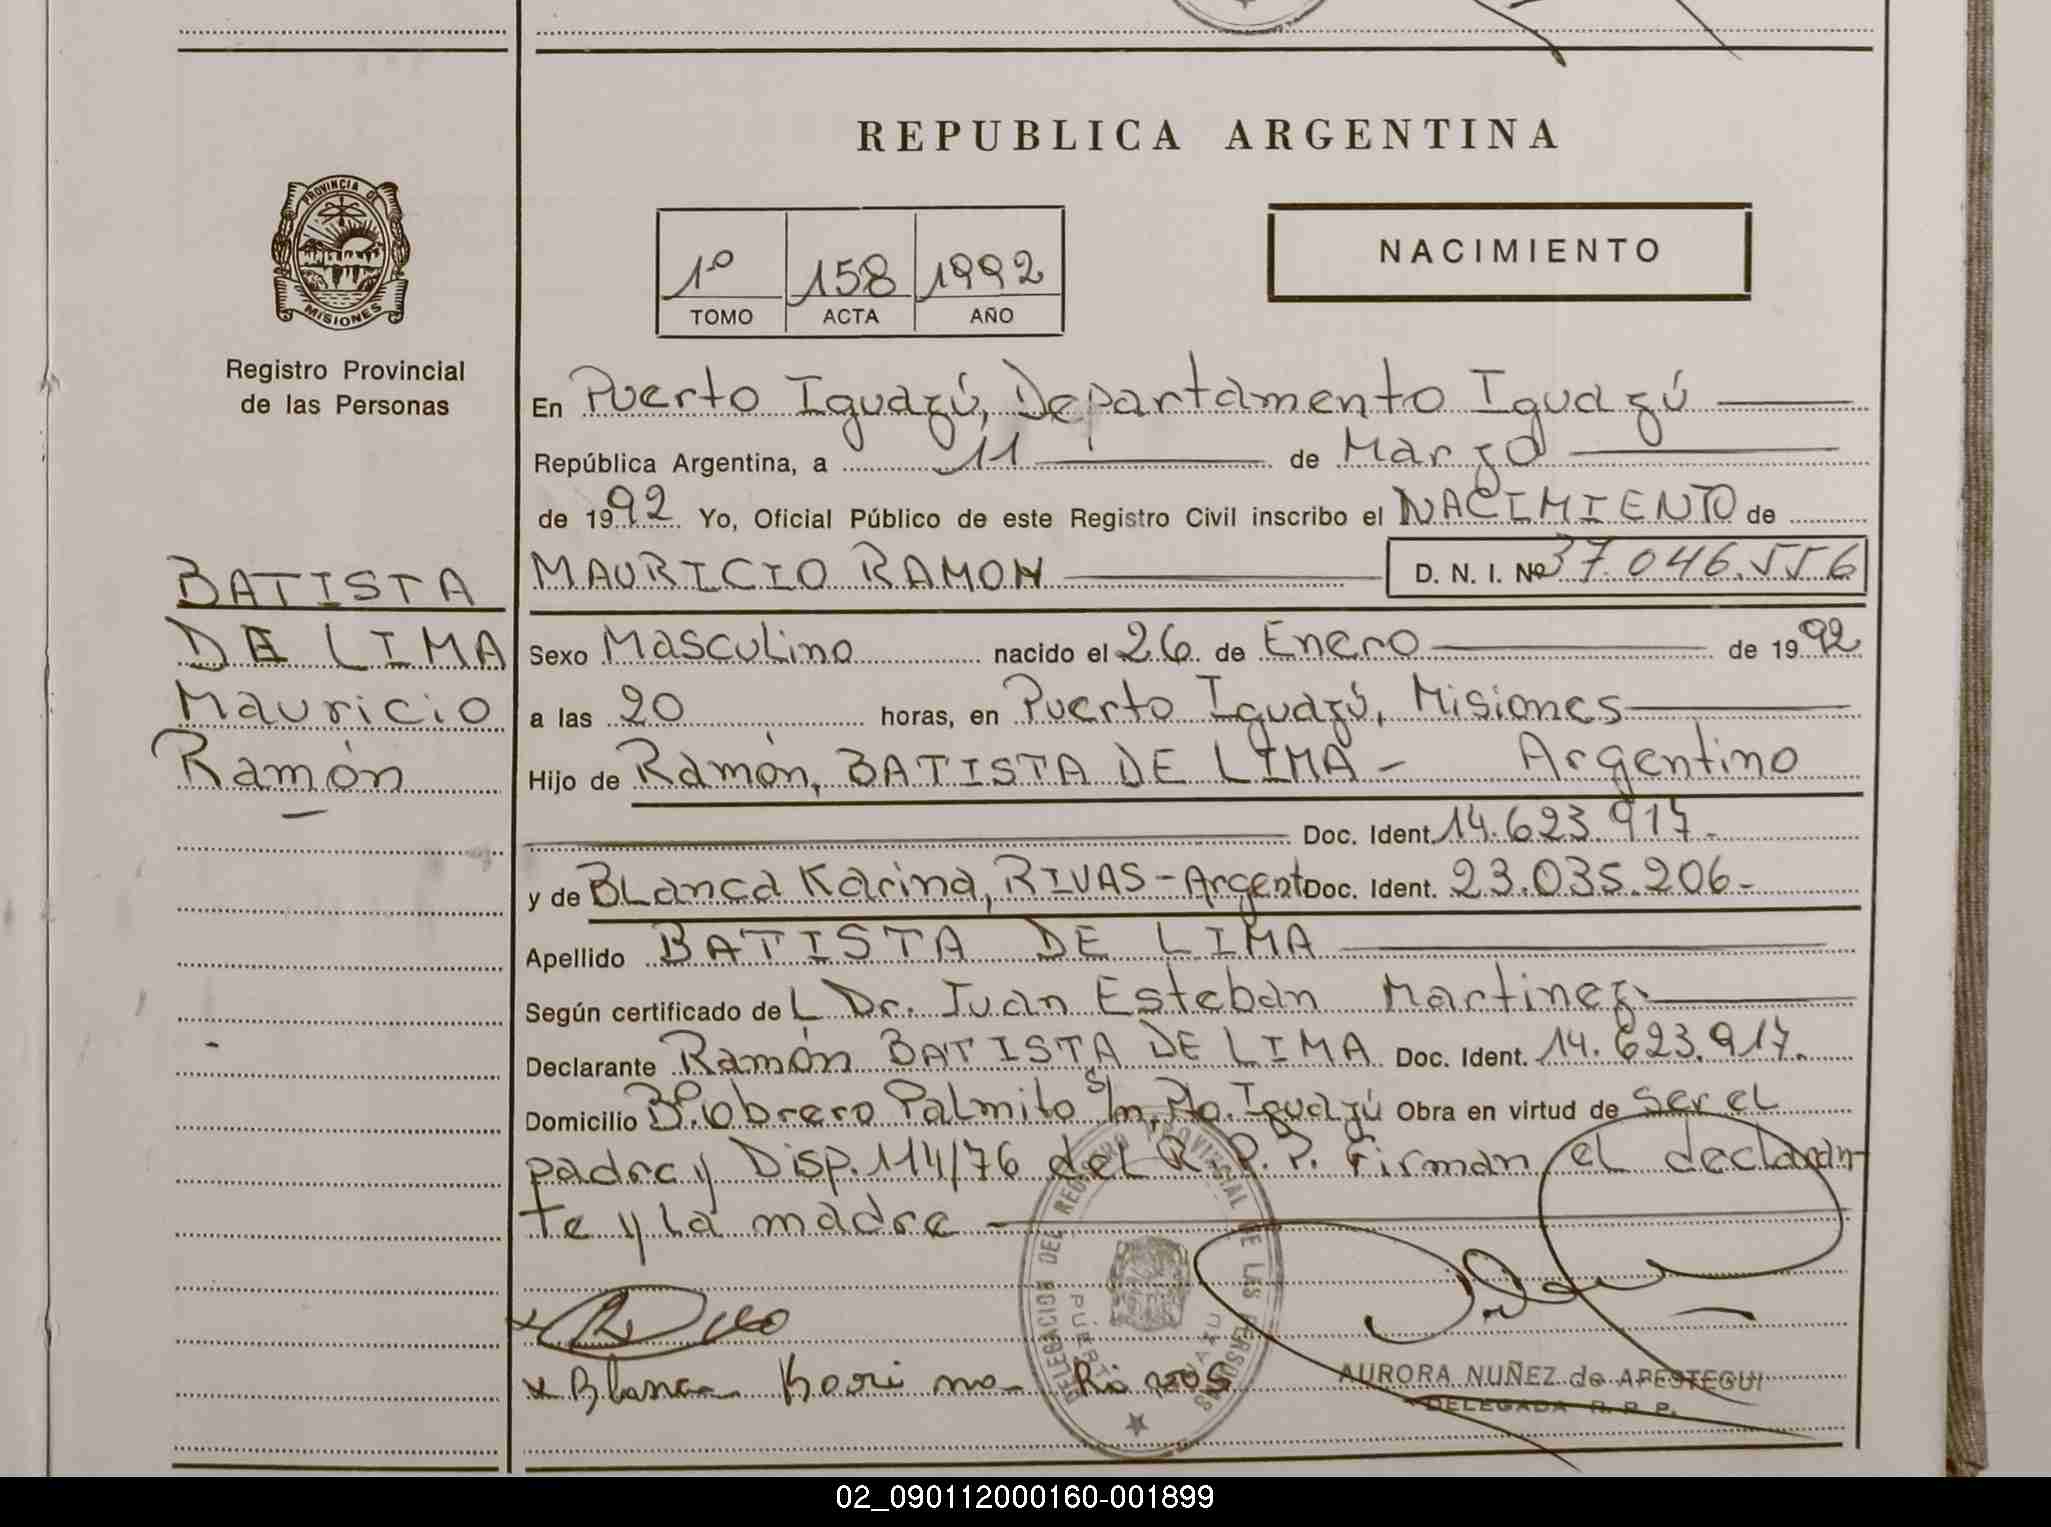 REPUBLICA ARGENTINA
PROVINCIA DE
MISIONES
Registro Provincial
de las Personas
1º 158 1992
TOMO ACTA AÑO
NACIMIENTO
En Puerto Iguazú, Departamento Iguazú
República Argentina, a 11 de Marzo
de 1992 Yo, Oficial Público de este Registro Civil inscribo el NACIMIENTO de
MAURICIO RAMON D. N. I. Nº 37.046.556
BATISTA
DE LIMA
Mauricio
Ramón
Sexo Masculino nacido el 26 de Enero de 1992
a las 20 horas, en Puerto Iguazú, Misiones
Hijo de Ramón, BATISTA DE LIMA - Argentino
Doc. Ident. 14.623.917.-
y de Blanca Karina, RIVAS - Argent Doc. Ident. 23.035.206.-
Apellido BATISTA DE LIMA
Según certificado de L Dr. Juan Esteban Martinez
Declarante Ramón BATISTA DE LIMA Doc. Ident. 14.623.917.
Domicilio Bº. obrero Palmito s/n, Pto. Iguazú Obra en virtud de ser el
padre y Disp. 114/76 del R.P.P. Firman el declaran-
te y la madre
DELEGACION DEL REGISTRO PROVINCIAL DE LAS PERSONAS
PUERTO IGUAZU
x Blanca Karina Rivas
AURORA NUÑEZ de APESTEGUI
DELEGADA R. P. P.
02_090112000160-001899